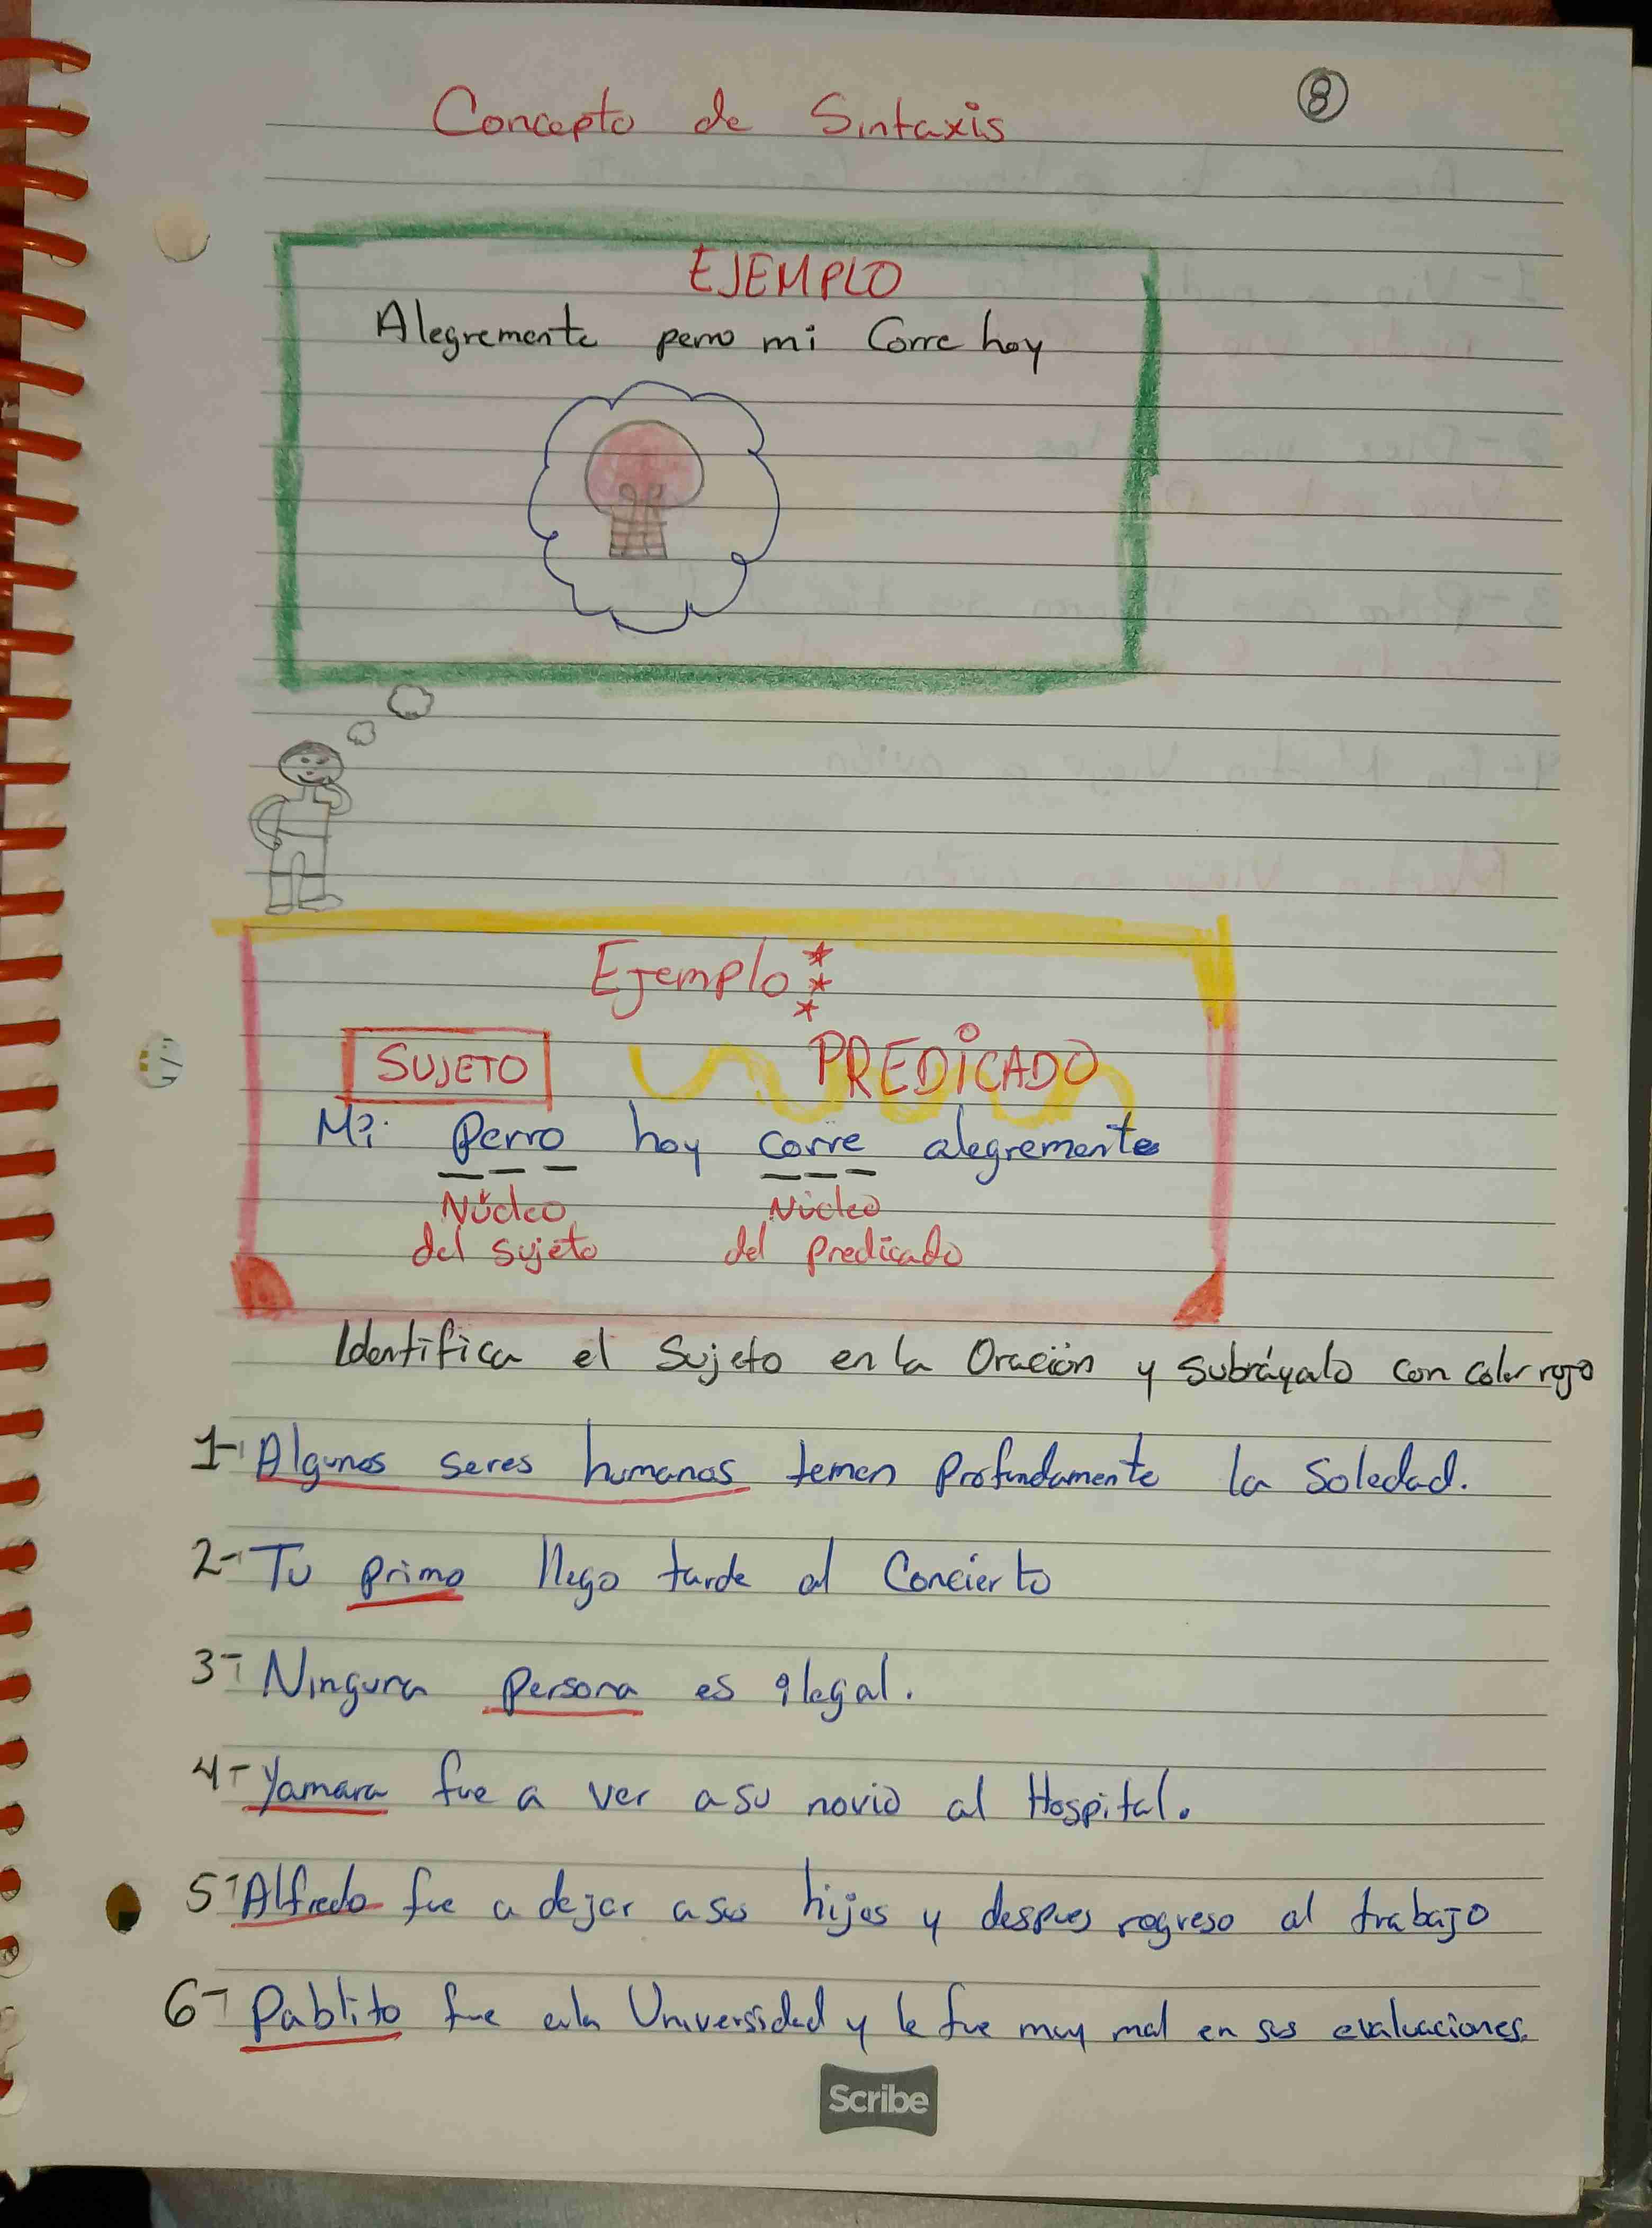 8
Concepto de Sintaxis
EJEMPLO
Alegremente perro mi Corre hoy
Ejemplo
SUJETO PREDICADO
Mi perro hoy corre alegremente
Núcleo Núcleo
del sujeto del predicado
Identifica el Sujeto en la Oración y Subráyalo con color rojo
1- Algunos seres humanos temen profundamente la Soledad.
2- Tu primo llego tarde al Concierto
3- Ninguna persona es ilegal.
4- Yamara fue a ver a su novio al Hospital.
5- Alfredo fue a dejar a sus hijos y despues regreso al trabajo
6- Pablito fue a la Universidad y le fue muy mal en sus evaluaciones.
Scribe